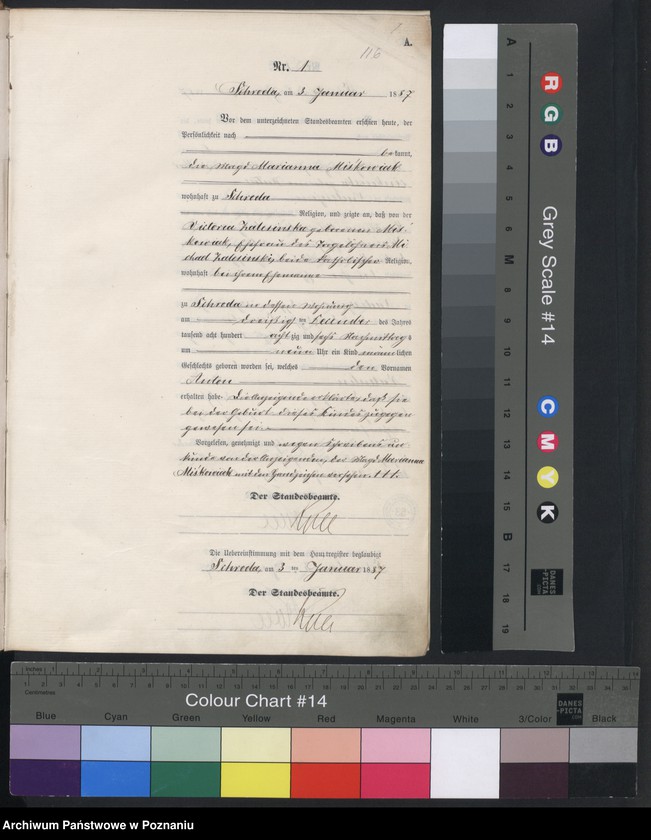 7
116
A.
Nr. 1
Schroda, am 3 Januar 1887
Vor dem unterzeichneten Standesbeamten erschien heute, der
Persönlichkeit nach
bekannt,
die Magd Marianna Miśkowiak
wohnhaft zu Schroda
Religion, und zeigte an, daß von der
Victoria Zalesinska geborenen Miś-
kowiak, Ehefrau des Tagelöhners Mi
chael Zalesinski, beide katholischer Religion,
wohnhaft bei ihrem Ehemanne
zu Schroda in dessen Wohnung
am dreißigsten Dezember des Jahres
tausend acht hundert achtzig und sechs Nachmittags
um neun Uhr ein Kind männlichen
Geschlechts geboren worden sei, welches den Vornamen
Anton
erhalten habe. Die Anzeigende erklärte, daß sie
bei der Geburt dieses Kindes zugegen
gewesen sei.
Vorgelesen, genehmigt und wegen Schreibens un
kunde von der Anzeigenden, der Magd Marianna
Miśkowiak mit dem Handzeichen versehen. ttt.
Der Standesbeamte.
Die Uebereinstimmung mit dem Hauptregister beglaubigt
Schroda, am 3 ten Januar 1887
Der Standesbeamte.
R G B
Grey Scale #14
C M Y K
A 1 2 3 4 5 6 M 8 9 10 11 12 13 14 15 B 17 18 19
DANES-PICTA.COM
Inches 1 2 3 4 5 6 7 8 9 10 11 12 13 14
Centimetres
Colour Chart #14
DANES-PICTA.COM
Blue Cyan Green Yellow Red Magenta White 3/Color Black
Archiwum Państwowe w Poznaniu